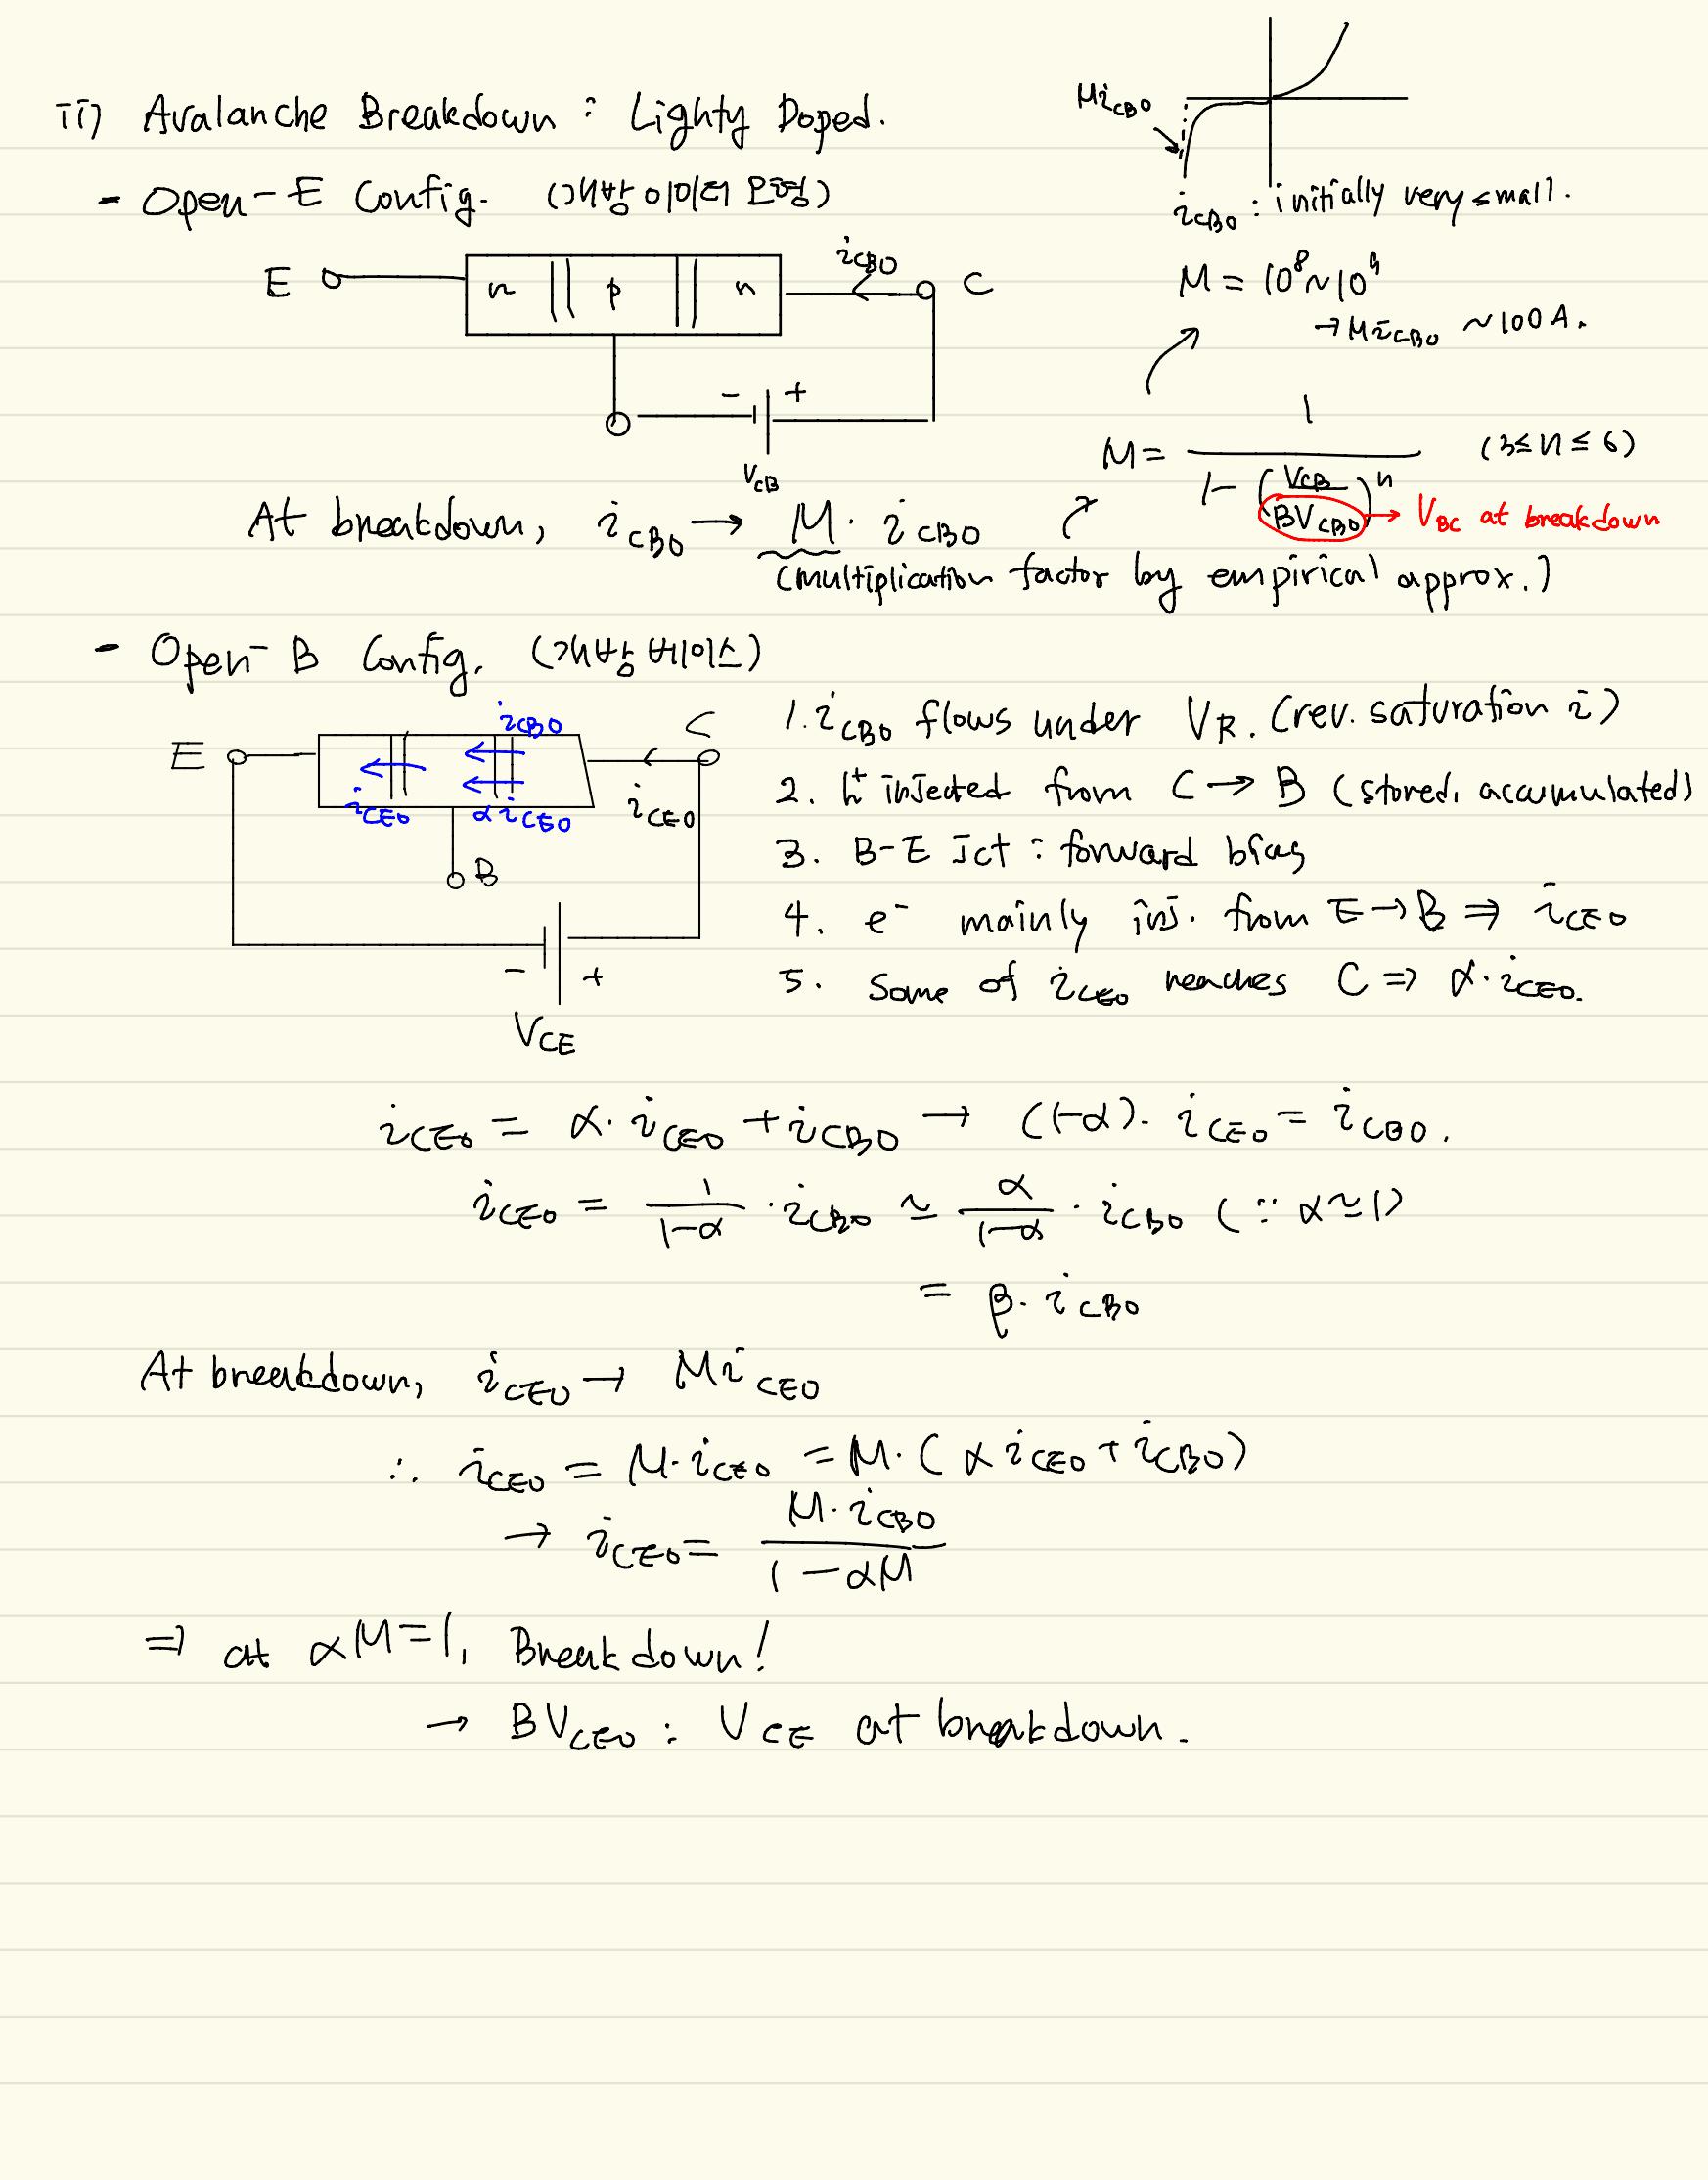 ii) Avalanche Breakdown : Lighty Doped.
- Open-E Config. (개방 이미터 모형)
Mi_CBO
i_CBO : initially very small.
E n p n i_CBO C
M = 10^8 ~ 10^9
→ Mi_CBO ~ 100 A.
- +
V_CB
M = 1 / (1 - (V_CB / BV_CBO)^n) (3 ≤ n ≤ 6)
→ V_BC at breakdown
At breakdown, i_CBO → M · i_CBO
(multiplication factor by empirical approx.)
- Open-B Config. (개방 베이스)
E i_CBO C
i_CEO α i_CEO i_CEO
B
- +
V_CE
1. i_CBO flows under V_R. (rev. saturation i)
2. h^+ injected from C → B (stored, accumulated)
3. B-E Jct : forward bias
4. e^- mainly inj. from E → B ⇒ i_CEO
5. Some of i_CEO reaches C ⇒ α · i_CEO.
i_CEO = α · i_CEO + i_CBO → (1-α) · i_CEO = i_CBO.
i_CEO = 1/(1-α) · i_CBO ≃ α/(1-α) · i_CBO (∵ α ≃ 1)
= β · i_CBO
At breakdown, i_CEO → M i_CEO
∴ i_CEO = M · i_CEO = M · (α i_CEO + i_CBO)
→ i_CEO = M · i_CBO / (1 - αM)
⇒ at αM = 1, Breakdown!
→ BV_CEO : V_CE at breakdown.